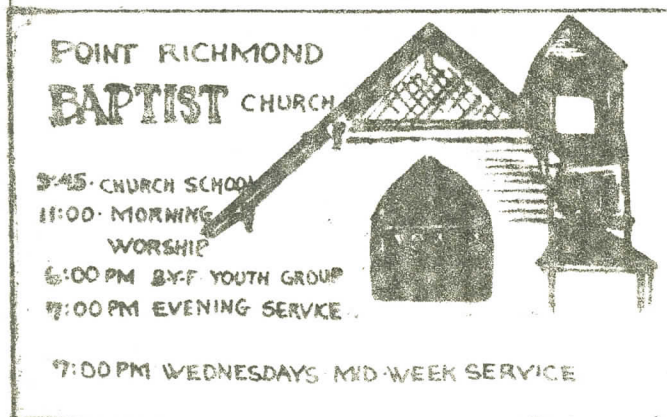 POINT RICHMOND
BAPTIST CHURCH
9:45· CHURCH SCHOOL
11:00· MORNING
WORSHIP
6:00 PM B·Y·F YOUTH GROUP
7:00 PM EVENING SERVICE
7:00 PM WEDNESDAYS MID-WEEK SERVICE